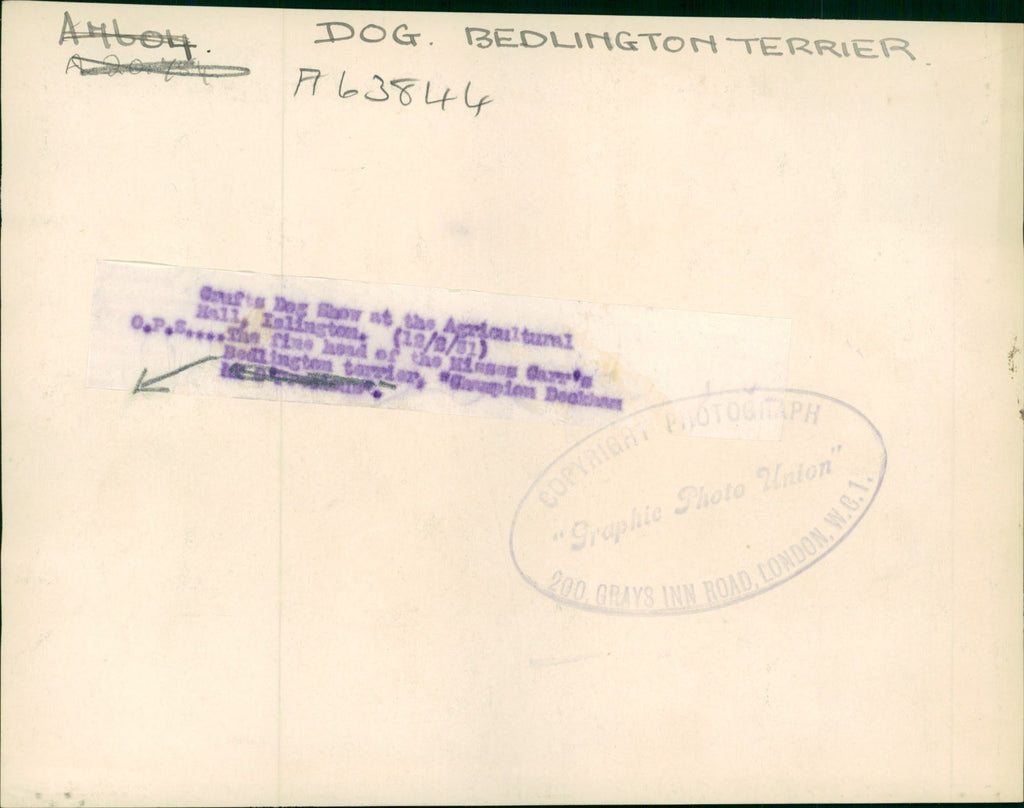 A4604.
DOG. BEDLINGTON TERRIER.
A63844
Crufts Dog Show at the Agricultural
Hall, Islington. (12/2/31)
O.P.S....The fine head of the Misses Carr's
Bedlington terrier, "Champion Deckham
COPYRIGHT PHOTOGRAPH
"Graphic Photo Union"
200, GRAYS INN ROAD, LONDON, W.C.1.